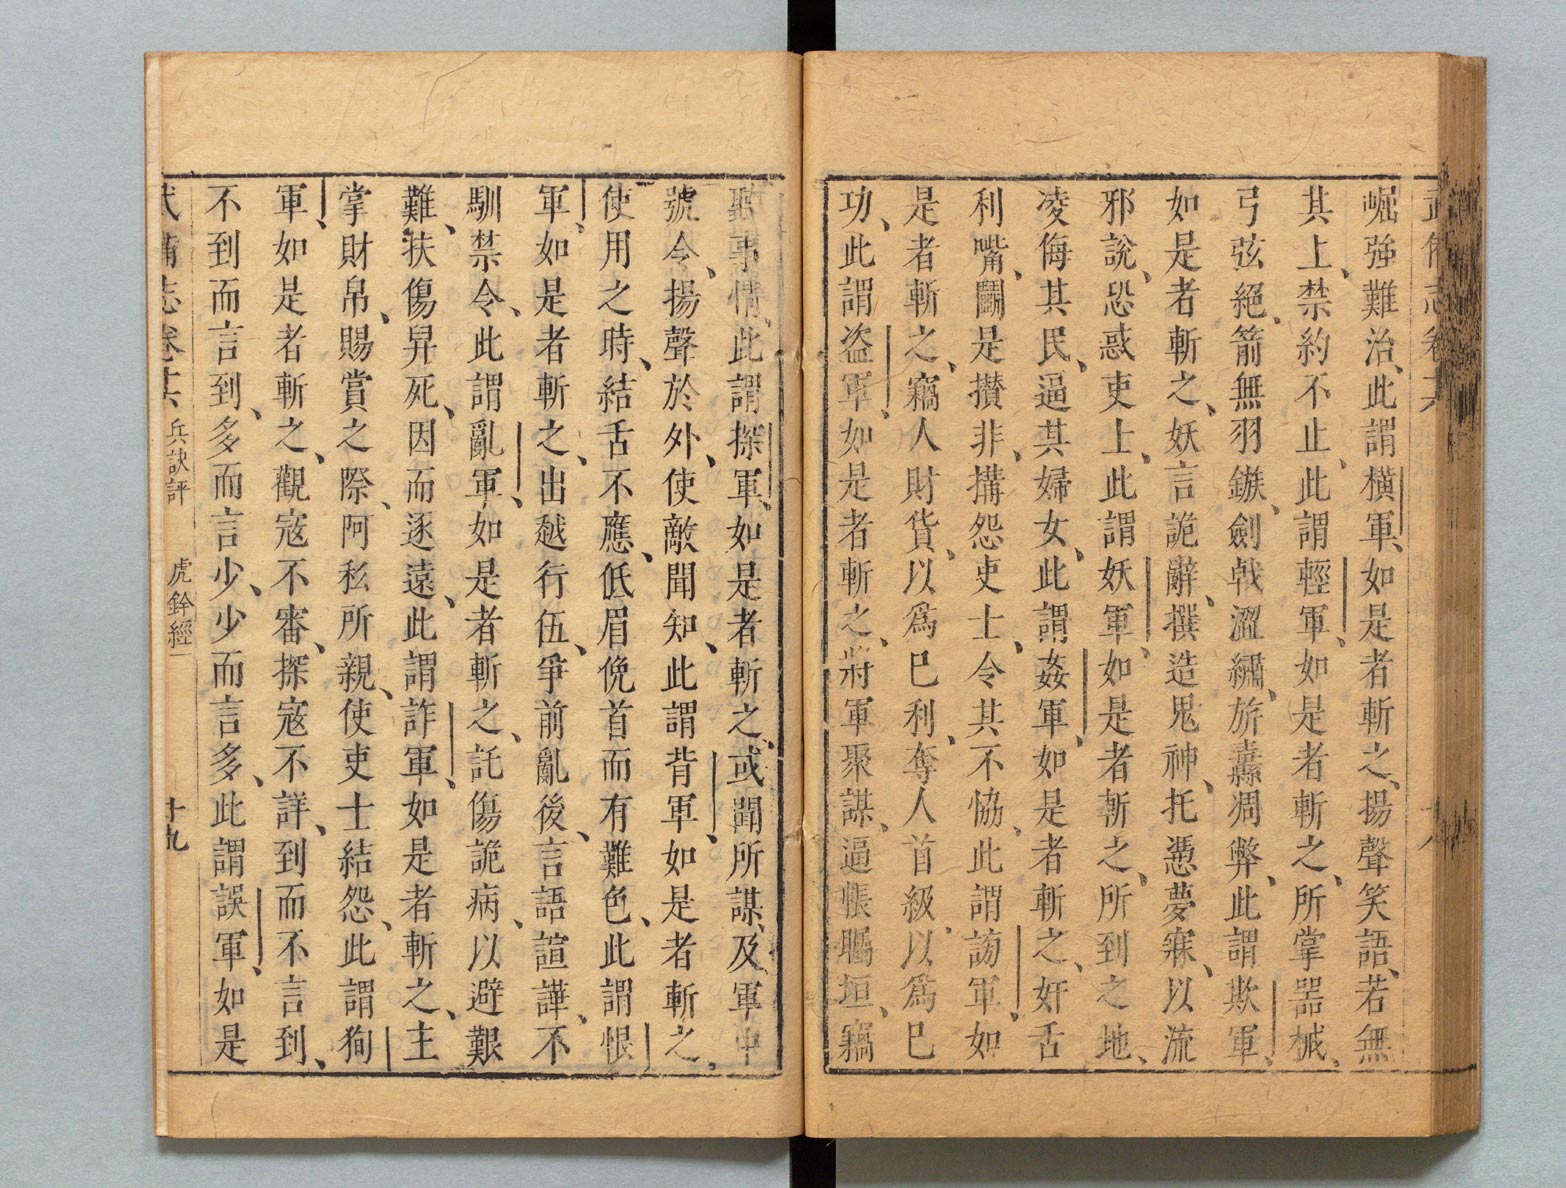 崛強難治、此謂橫軍、如是者斬之、揚聲笑語、若無
其上、禁約不止、此謂輕軍、如是者斬之、所掌器械、
弓弦絕、箭無羽鏃、劍戟澀繡、旂纛凋弊、此謂欺軍、
如是者斬之、妖言詭辭、撰造鬼神、托憑夢寐、以流
邪說、恐惑吏士、此謂妖軍、如是者斬之、所到之地、
凌侮其民、逼其婦女、此謂姦軍、如是者斬之、奸舌
利嘴、鬬是攅非、搆怨吏士、令其不恊、此謂謗軍、如
是者斬之、竊人財貨、以爲巳利、奪人首級、以爲巳
功、此謂盗軍、如是者斬之、將軍聚謀、逼帳矚垣、竊
聽事情、此謂探軍、如是者斬之、或聞所謀、及軍中
號令、揚聲於外、使敵聞知、此謂背軍、如是者斬之、
使用之時、結舌不應、低眉俛首而有難色、此謂恨
軍、如是者斬之、出越行伍、爭前亂後、言語諠譁、不
馴禁令、此謂亂軍、如是者斬之、託傷詭病、以避艱
難、扶傷舁死、因而逐遠、此謂詐軍、如是者斬之、主
掌財帛、賜賞之際、阿私所親、使吏士結怨、此謂狥
軍、如是者斬之、觀寇不審、探寇不詳、到而不言到、
不到而言到、多而言少、少而言多、此謂誤軍、如是
武備志卷十六 兵訣評 虎鈐經一 十九